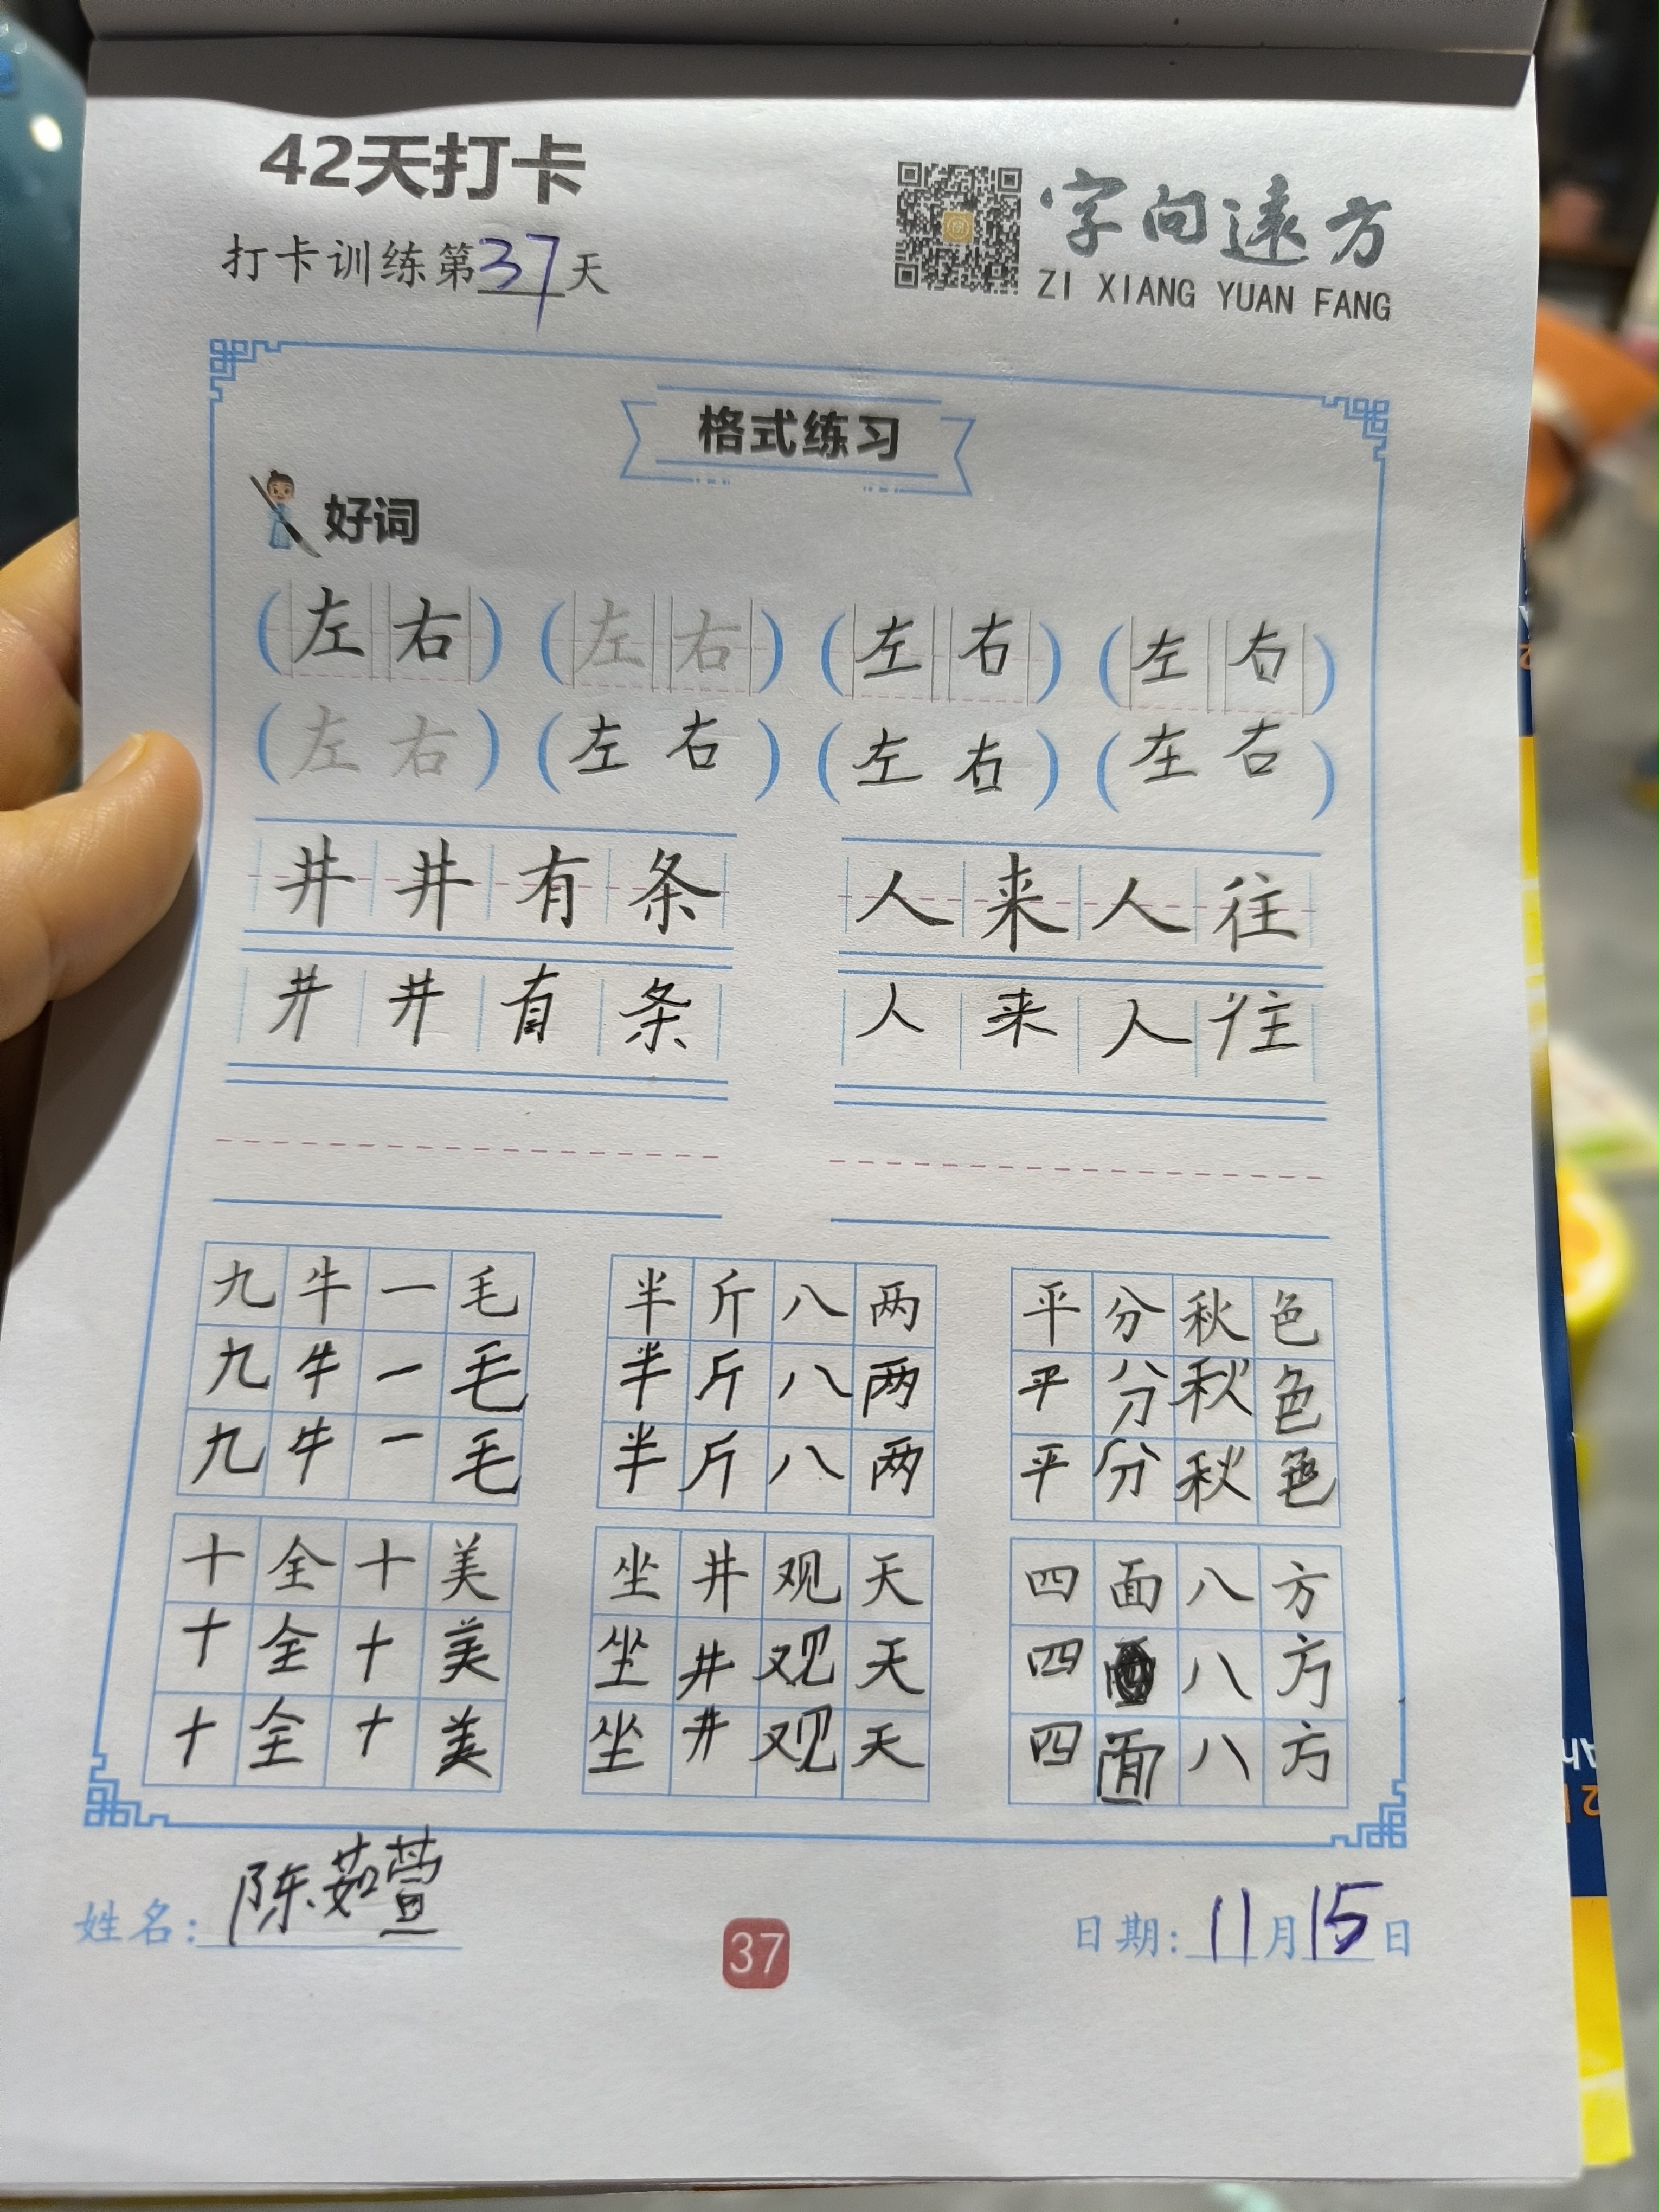 42天打卡
打卡训练第37天
字向遠方
ZI XIANG YUAN FANG
格式练习
好词
(左右) (左右) (左右) (左右)
(左右) (左右) (左右) (左右)
井井有条 人来人往
井井有条 人来人往
九牛一毛 半斤八两 平分秋色
九牛一毛 半斤八两 平分秋色
九牛一毛 半斤八两 平分秋色
十全十美 坐井观天 四面八方
十全十美 坐井观天 四八方
十全十美 坐井观天 四面八方
姓名:陈茹萱
37
日期:11月15日